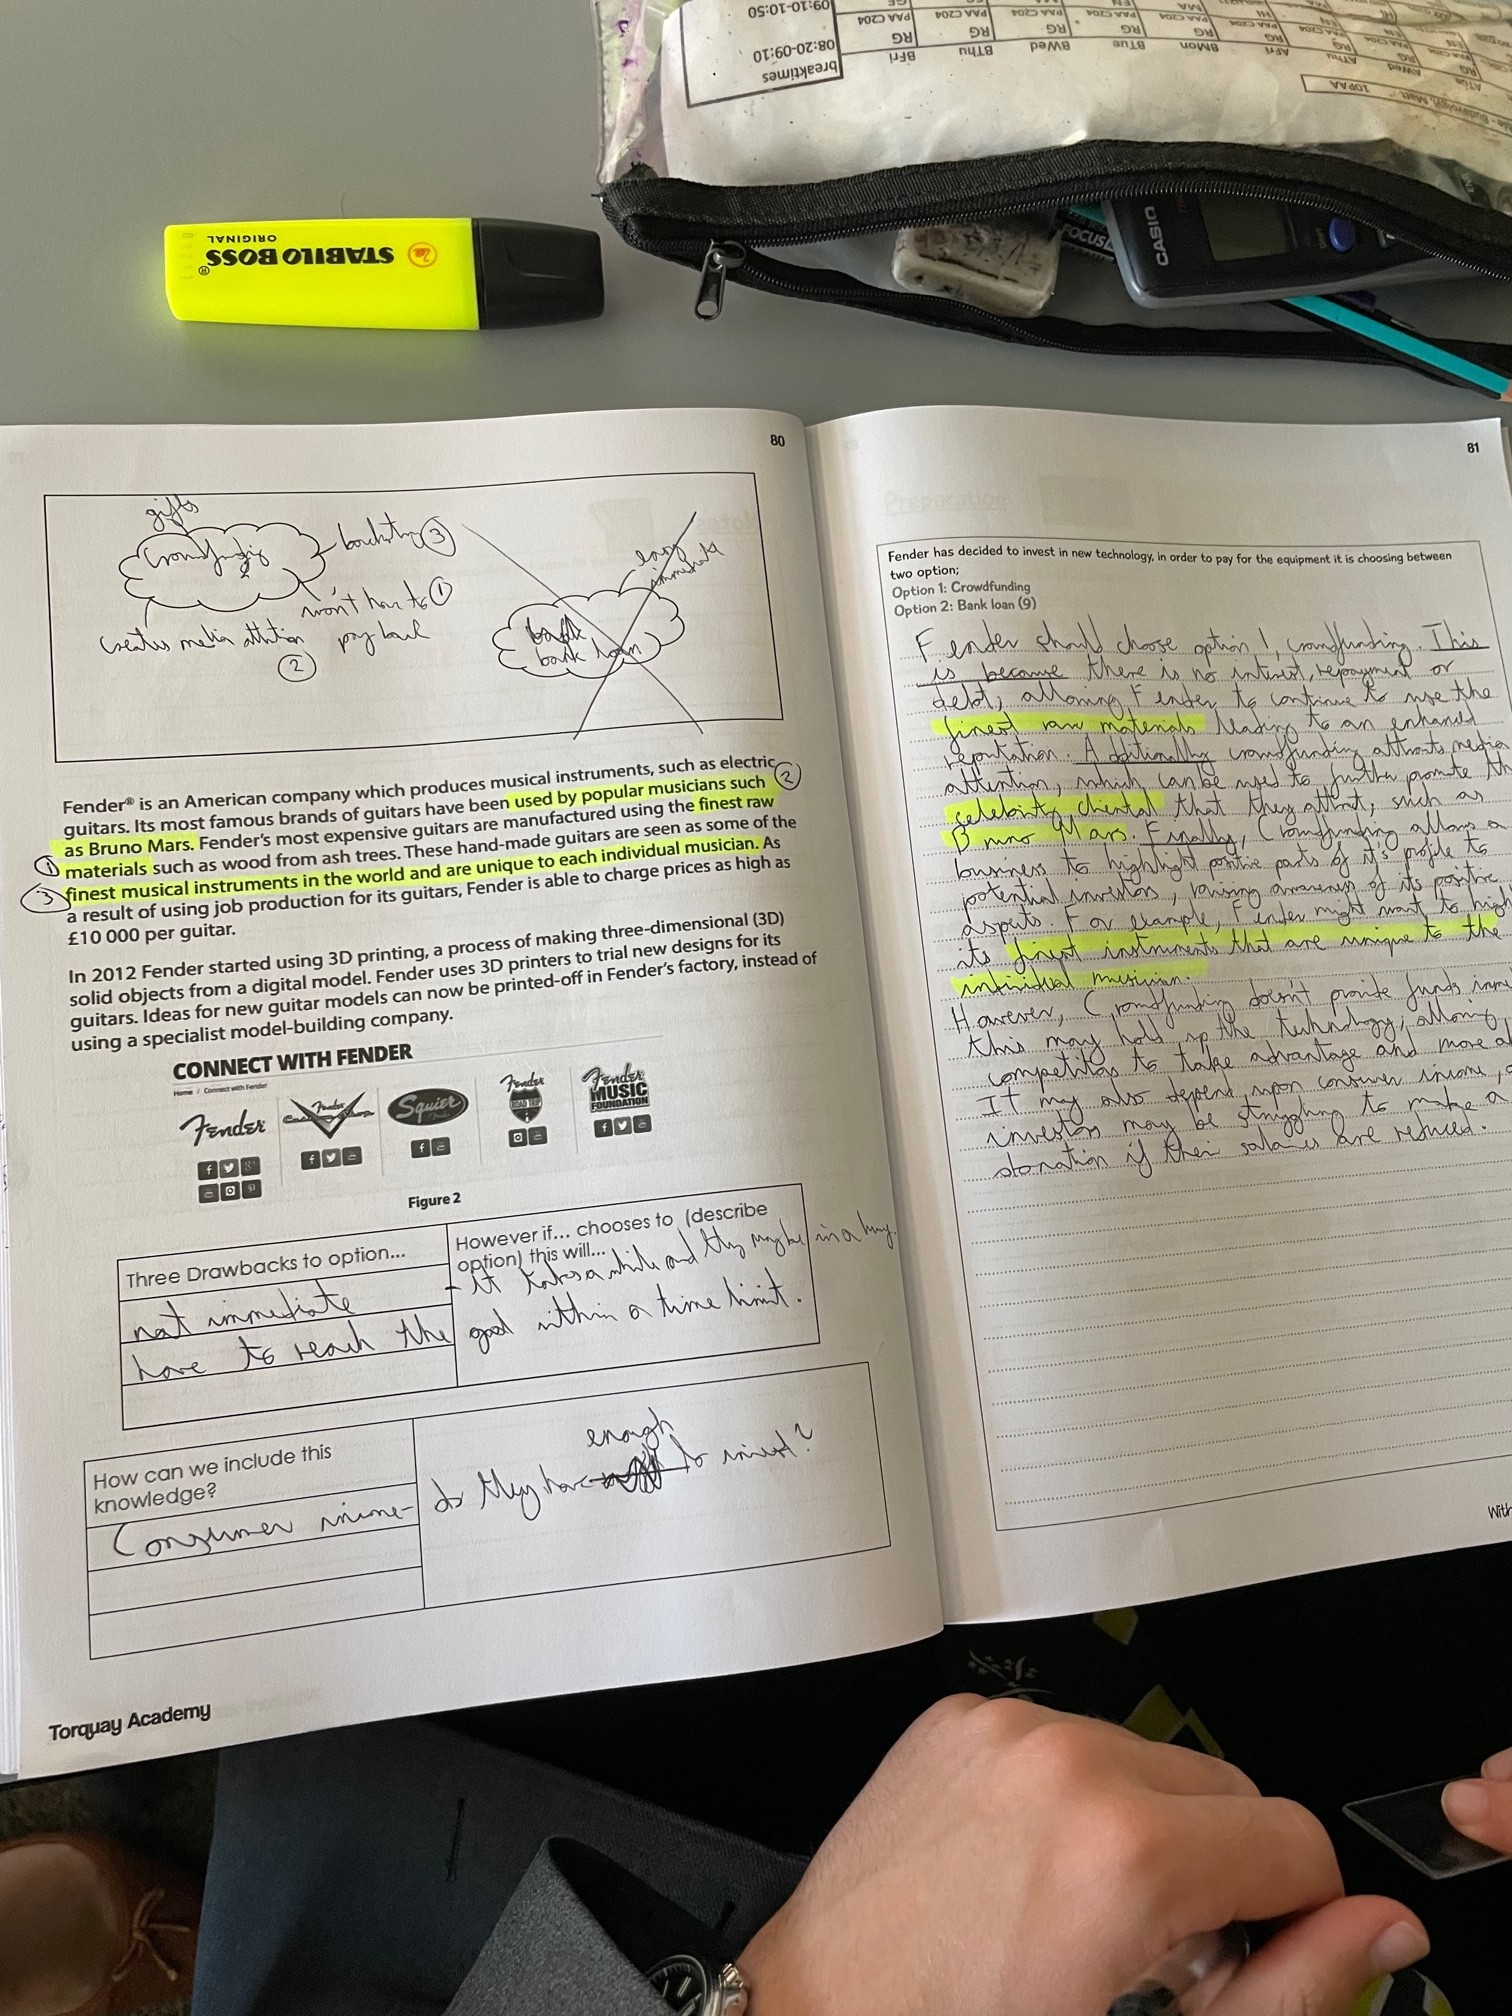 breaktimes
08:20-09:10
09:10-10:50
BFri
BThu
BWed
BTue
BMon
AFri
AThu
AWed
ATue
RG
RG
RG
RG
RG
RG
PAA C204
PAA C204
PAA C204
PAA C204
10PAA
STABILO BOSS®
ORIGINAL
FOCUS
CASIO
80
gifts
Crowdfunding
3
won't have to 1
pay back
creates media attention
2
easy
bank loan
Fender® is an American company which produces musical instruments, such as electric
guitars. Its most famous brands of guitars have been used by popular musicians such 2
as Bruno Mars. Fender's most expensive guitars are manufactured using the finest raw
1 materials such as wood from ash trees. These hand-made guitars are seen as some of the
3 finest musical instruments in the world and are unique to each individual musician. As
a result of using job production for its guitars, Fender is able to charge prices as high as
£10 000 per guitar.
In 2012 Fender started using 3D printing, a process of making three-dimensional (3D)
solid objects from a digital model. Fender uses 3D printers to trial new designs for its
guitars. Ideas for new guitar models can now be printed-off in Fender's factory, instead of
using a specialist model-building company.
CONNECT WITH FENDER
Home / Connect with Fender
Fender
Fender
Squier
Fender
Fender
MUSIC
FOUNDATION
Figure 2
Three Drawbacks to option...
However if... chooses to (describe
option) this will...
not immediate
- it takes a while and they maybe in a hurry.
have to reach the goal within a time limit.
How can we include this
knowledge?
enough
Consumer income - do they have to invest?
Torquay Academy
81
Preparation
Fender has decided to invest in new technology, in order to pay for the equipment it is choosing between
two option;
Option 1: Crowdfunding
Option 2: Bank loan (9)
Fender should choose option 1, crowdfunding. This
is because there is no interest, repayment or
debt, allowing Fender to continue to use the
finest raw materials leading to an enhanced
reputation. Additionally crowdfunding attracts media
attention, which can be used to further promote th
celebrity cliental that they attract, such as
Bruno Mars. Finally, Crowdfunding allows a
business to highlight positive parts of it's profile to
potential investors, raising awareness of its positive
aspects. For example, Fender might want to high
its finest instruments that are unique to the
individual musician.
However, Crowdfunding doesn't provide funds imme
this may hold up the technology, allowing
competitors to take advantage and more a
It may also depend upon consumer income, a
investors may be struggling to make a
donation if their salaries are reduced.
With